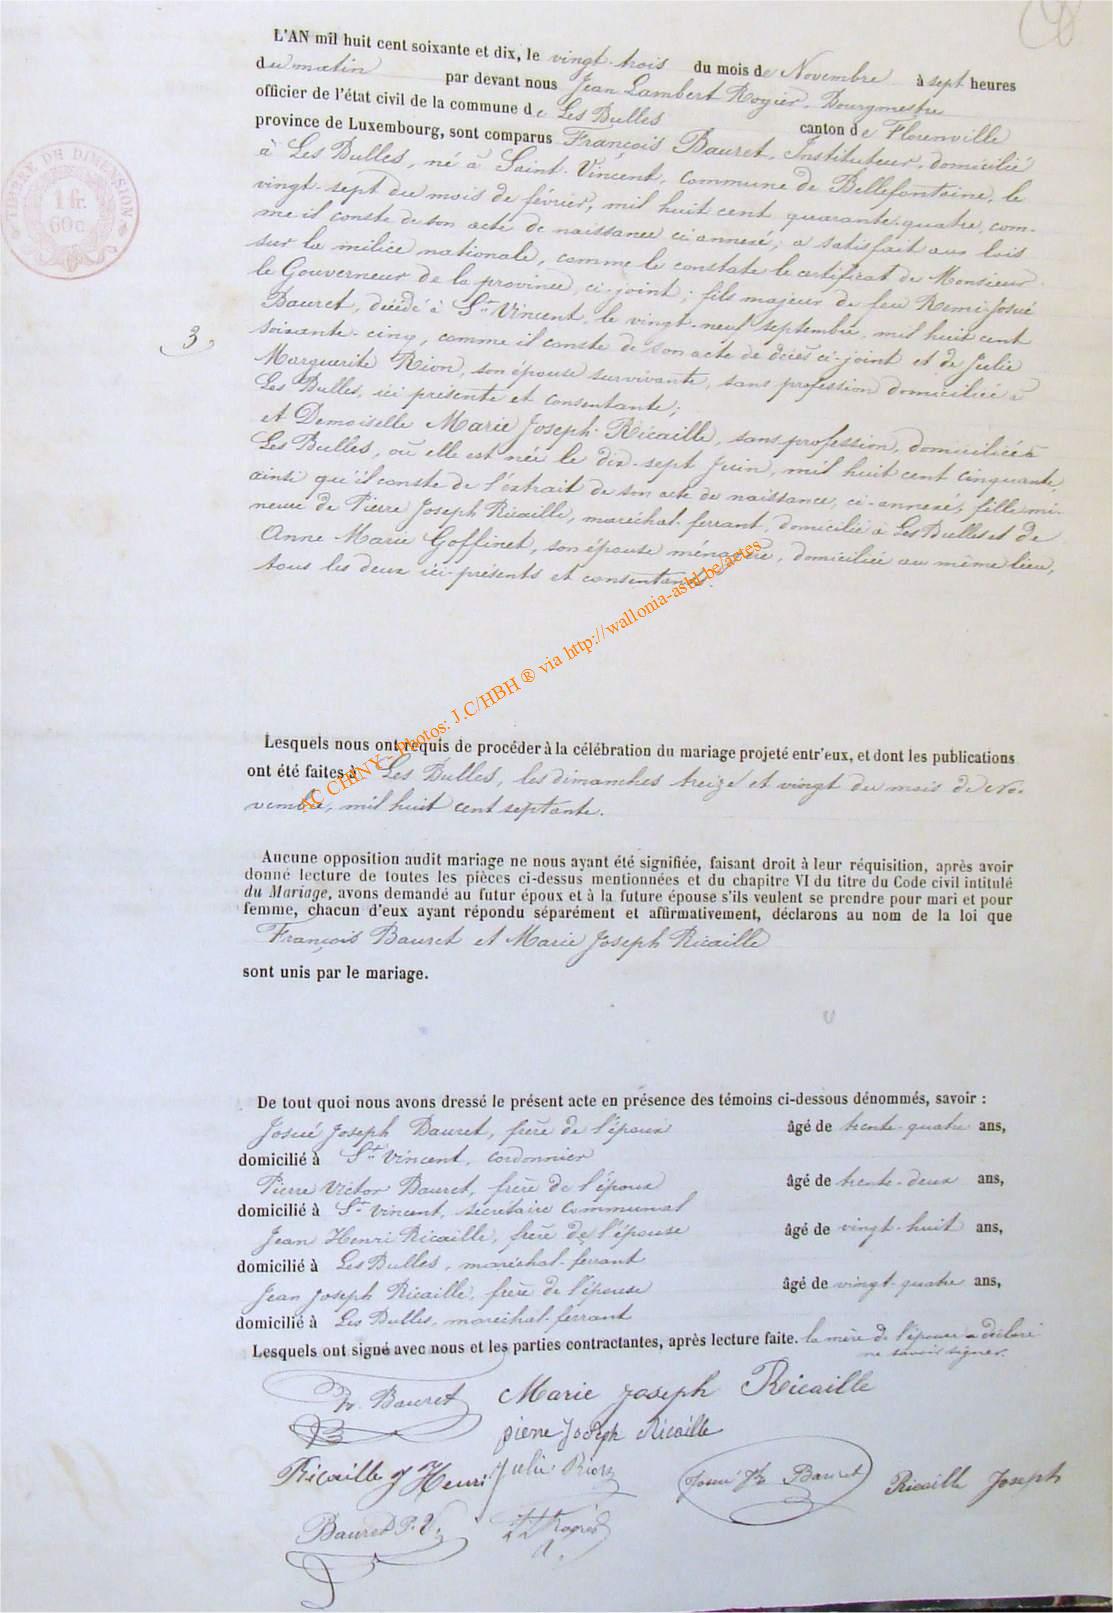 L'AN mil huit cent soixante et dix, le vingt-trois du mois de Novembre à sept heures
du matin par devant nous Jean Lambert Rogier, Bourgmestre
officier de l'état civil de la commune de Les Bulles canton de Florenville
province de Luxembourg, sont comparus François Bauret, Instituteur, domicilié
à Les Bulles, né à Saint-Vincent, commune de Bellefontaine, le
vingt-sept du mois de février, mil huit cent quarante-quatre, com-
me il conste de son acte de naissance ci annexé; a satisfait aux lois
sur la milice nationale, comme le constate le certificat de Monsieur
le Gouverneur de la province, ci-joint; fils majeur de feu Remi-Josué
Bauret, décédé à St. Vincent, le vingt-neuf septembre, mil huit cent
soixante-cinq, comme il conste de son acte de décès ci-joint et de Julie
Marguerite Rion, son épouse survivante, sans profession domiciliée à
Les Bulles, ici présente et consentante;
et Demoiselle Marie Joseph Ricaille, sans profession, domiciliée à
Les Bulles, où elle est née le dix-sept Juin, mil huit cent cinquante,
ainsi qu'il conste de l'extrait de son acte de naissance, ci-annexé, fille mi-
neure de Pierre Joseph Ricaille, maréchal-ferrant, domicilié à Les Bulles et de
Anne Marie Goffinet, son épouse ménagère, domiciliée au même lieu,
tous les deux ici-présents et consentants.
TIMBRE DE DIMENSION
1 fr.
60 c.
3
AC CHINY - Photos: J.C/HBH ® via http://wallonia-asbl.be/actes
Lesquels nous ont requis de procéder à la célébration du mariage projeté entr'eux, et dont les publications
ont été faites à Les Bulles, les dimanches treize et vingt du mois de No-
vembre, mil huit cent septante.
Aucune opposition audit mariage ne nous ayant été signifiée, faisant droit à leur réquisition, après avoir
donné lecture de toutes les pièces ci-dessus mentionnées et du chapitre VI du titre du Code civil intitulé
du Mariage, avons demandé au futur époux et à la future épouse s'ils veulent se prendre pour mari et pour
femme, chacun d'eux ayant répondu séparément et affirmativement, déclarons au nom de la loi que
François Bauret et Marie Joseph Ricaille
sont unis par le mariage.
De tout quoi nous avons dressé le présent acte en présence des témoins ci-dessous dénommés, savoir :
Josué Joseph Bauret, frère de l'époux âgé de trente-quatre ans,
domicilié à St. Vincent, cordonnier
Pierre Victor Bauret, frère de l'époux âgé de trente-deux ans,
domicilié à St. Vincent, secrétaire communal
Jean Henri Ricaille, frère de l'épouse âgé de vingt-huit ans,
domicilié à Les Bulles, maréchal-ferrant
Jean Joseph Ricaille, frère de l'épouse âgé de vingt-quatre ans,
domicilié à Les Bulles, maréchal-ferrant
Lesquels ont signé avec nous et les parties contractantes, après lecture faite. la mère de l'épouse a déclaré
ne savoir signer.
Fr. Bauret Marie Joseph Ricaille
pierre Joseph Ricaille
Ricaille J Henri Julie Rion Josué Jh Bauret Ricaille Joseph
Bauret P. V.